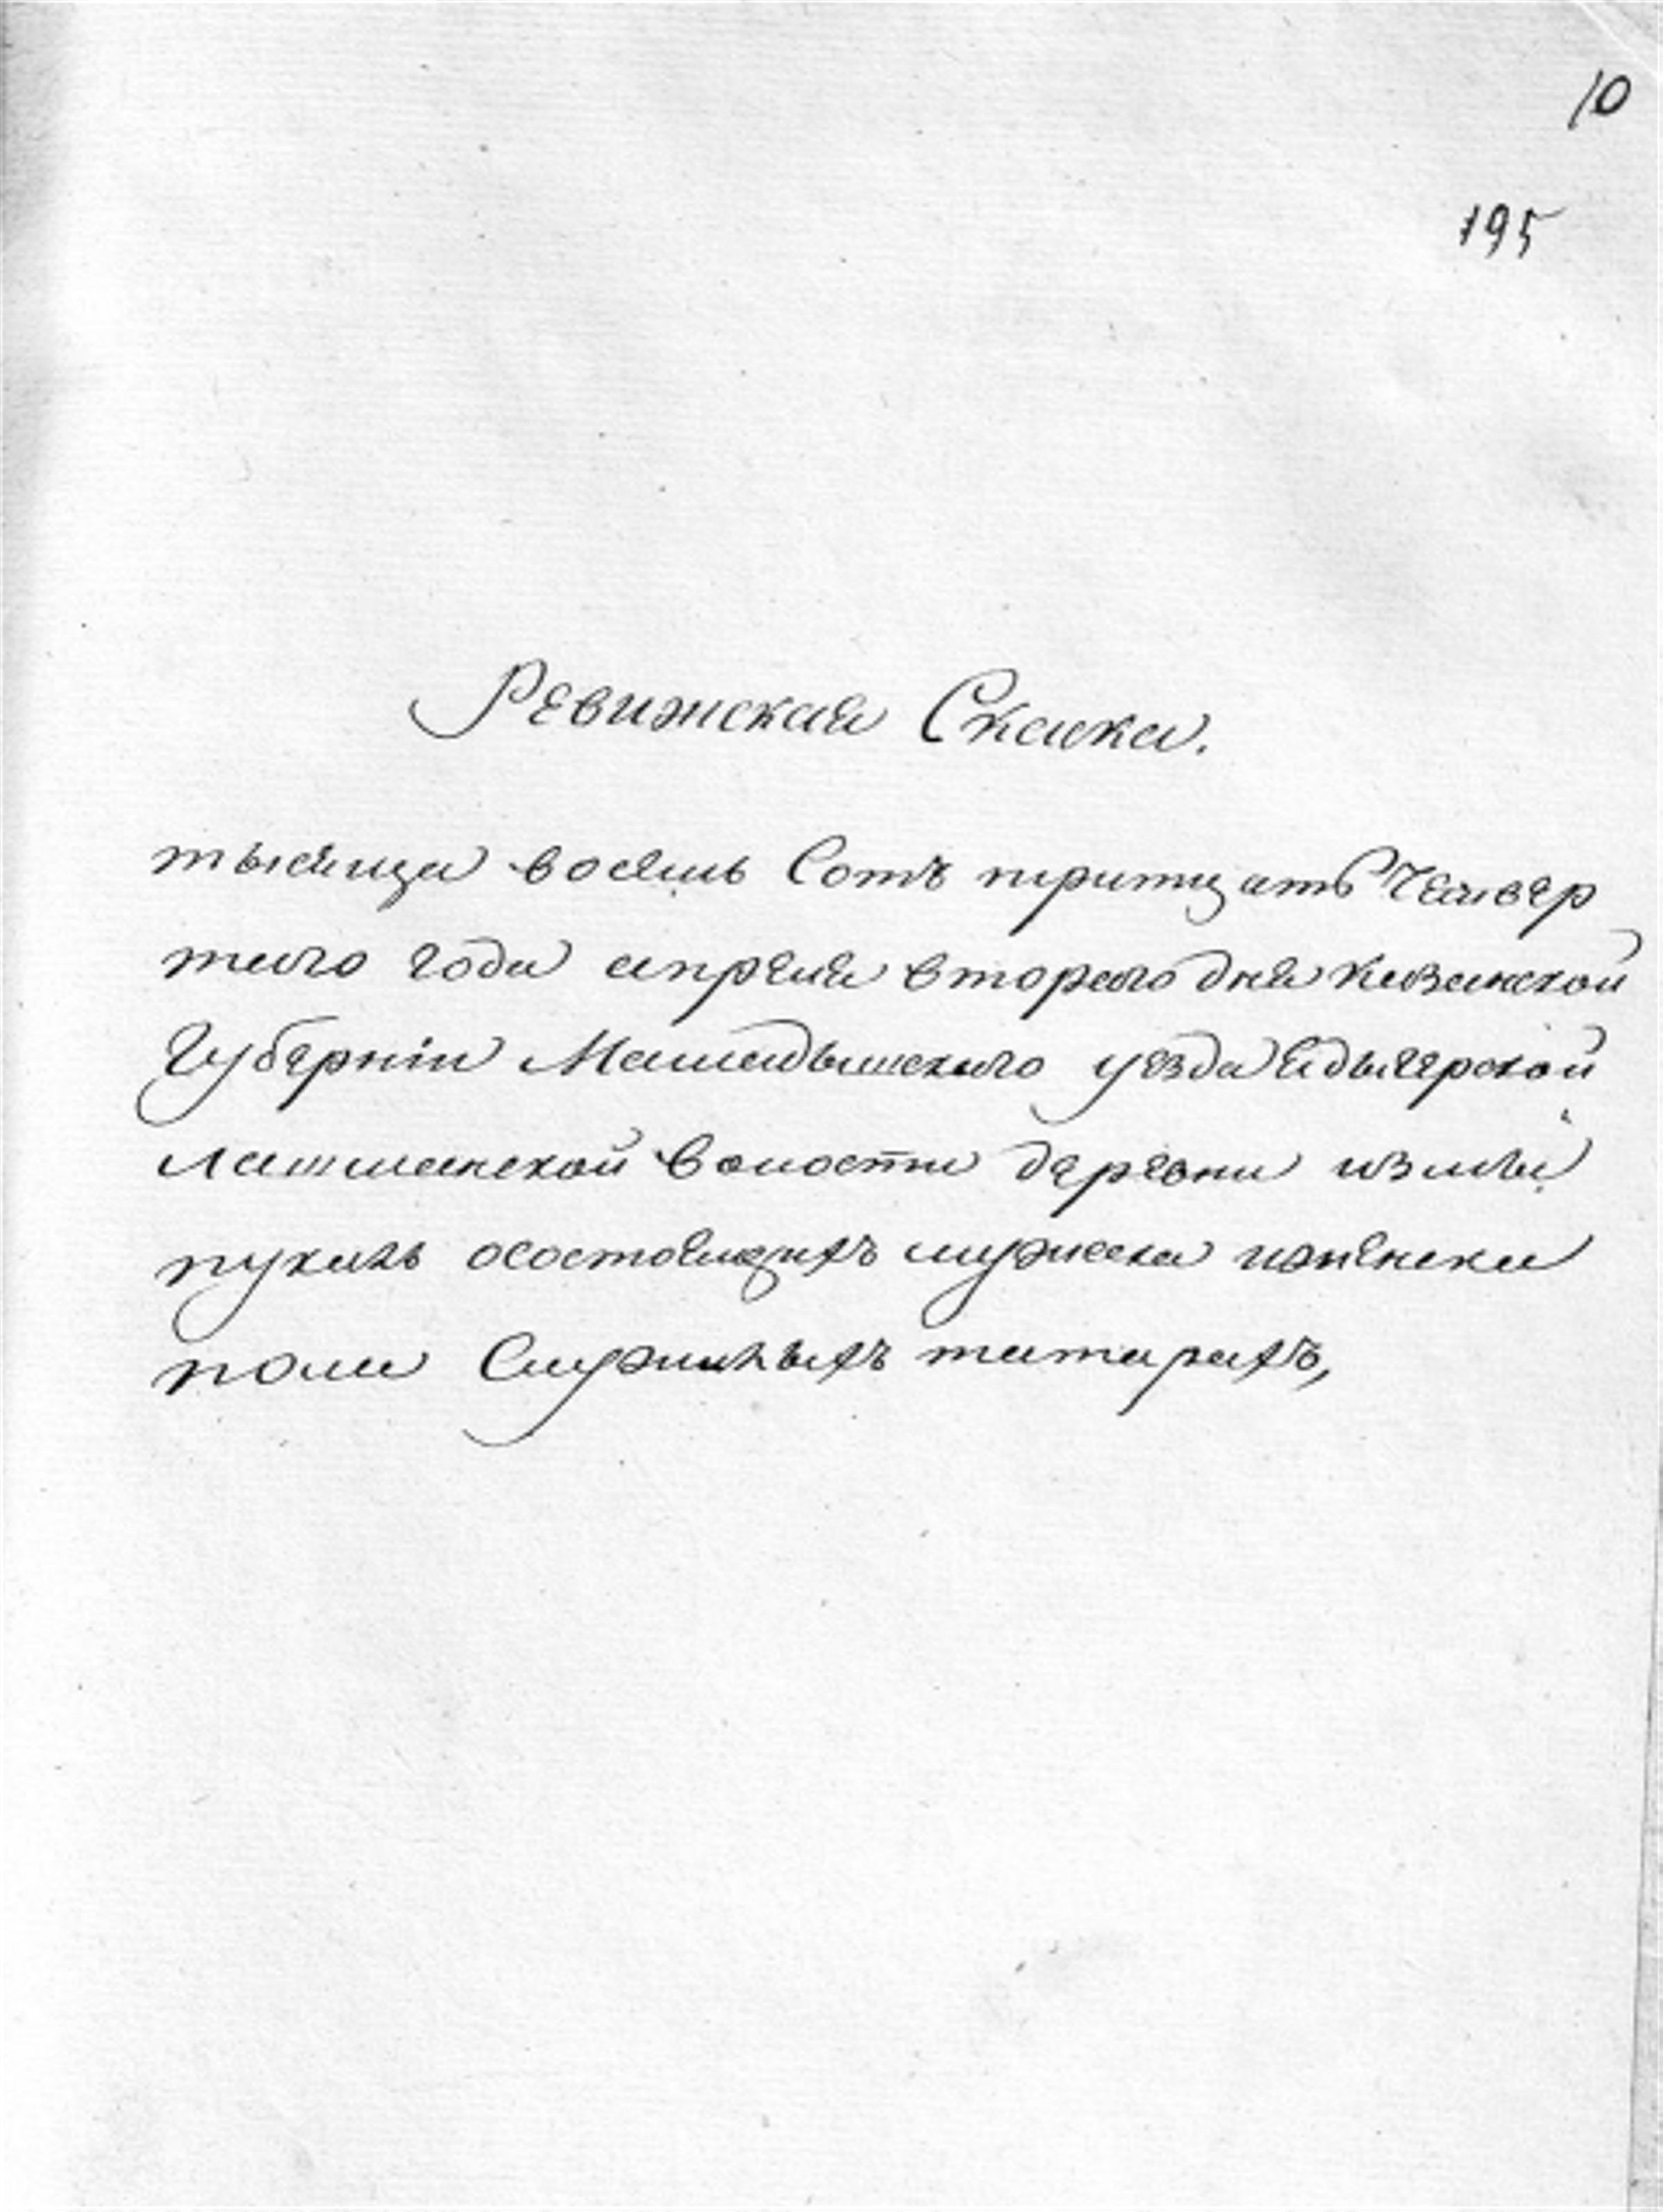 10
195
Ревижская Скаска.
тысяща восемь Сотъ тритцать Четвер
таго года апреля втораго дня казанской
Губерніи Мамадышскаго уезда Едыгерской
лашманской волости деревни измы
осостоящихъ мужеска иженска
пола Служилыхъ татарахъ,